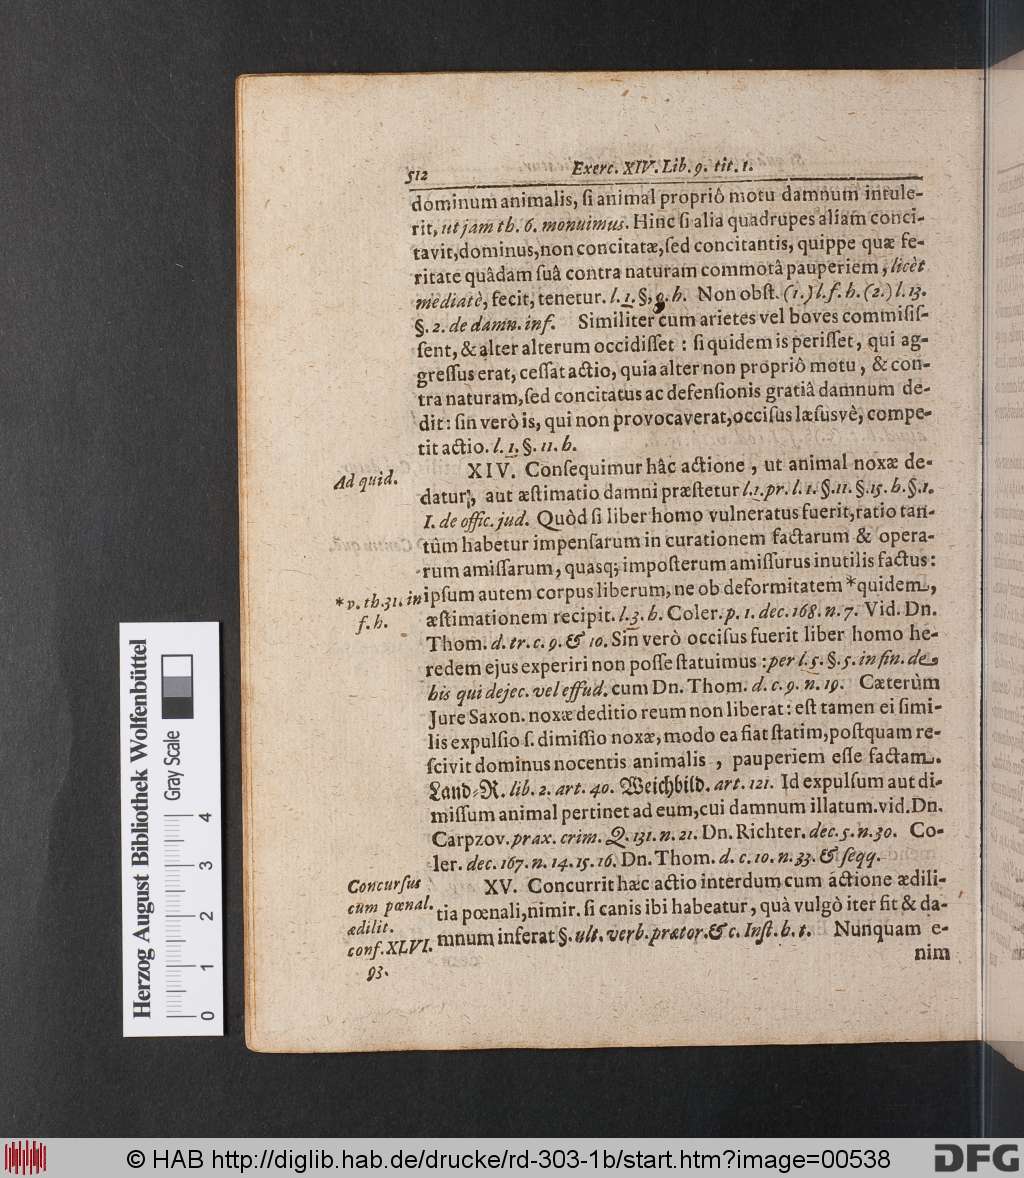 512 Exerc. XIV. Lib. 9. tit. 1.
dominum animalis, ſi animal propriô motu damnum intule-
rit, ut jam th. 6. monuimus. Hinc ſi alia quadrupes aliam conci-
tavit, dominus, non concitatæ, ſed concitantis, quippe quæ fe-
ritate quâdam ſuâ contra naturam commotâ pauperiem, licèt
mediatè, fecit, tenetur. l. 1. §. 9. h. Non obſt. (1.) l. f. h. (2.) l. 13.
§. 2. de damn. inf. Similiter cum arietes vel boves commiſiſ-
ſent, & alter alterum occidiſſet : ſi quidem is periſſet, qui ag-
greſſus erat, ceſſat actio, quia alter non propriô motu, & con-
tra naturam, ſed concitatus ac defenſionis gratiâ damnum de-
dit : ſin verò is, qui non provocaverat, occiſus læſusvè, compe-
tit actio. l. 1. §. 11. h.
Ad quid.
XIV. Conſequimur hâc actione, ut animal noxæ de-
datur, aut æſtimatio damni præſtetur l. 1. pr. l. 1. §. 11. §. 15. h. §. 1.
I. de offic. jud. Quòd ſi liber homo vulneratus fuerit, ratio tan-
tùm habetur impenſarum in curationem factarum & opera-
rum amiſſarum, quasq; impoſterum amiſſurus inutilis factus :
* v. th. 31. in
f. h.
ipſum autem corpus liberum, ne ob deformitatem * quidem,
æſtimationem recipit. l. 3. h. Coler. p. 1. dec. 168. n. 7. Vid. Dn.
Thom. d. tr. c. 9. & 10. Sin verò occiſus fuerit liber homo he-
redem ejus experiri non poſſe ſtatuimus : per l. 5. §. 5. in fin. de
his qui dejec. vel effud. cum Dn. Thom. d. c. 9. n. 19. Cæterùm
Jure Saxon. noxæ deditio reum non liberat : eſt tamen ei ſimi-
lis expulſio ſ. dimiſſio noxæ, modo ea fiat ſtatim, poſtquam re-
ſcivit dominus nocentis animalis, pauperiem eſſe factam.
Land-R. lib. 2. art. 40. Weichbild. art. 121. Id expulſum aut di-
miſſum animal pertinet ad eum, cui damnum illatum. vid. Dn.
Carpzov. prax. crim. Q. 131. n. 21. Dn. Richter. dec. 5. n. 30. Co-
ler. dec. 167. n. 14. 15. 16. Dn. Thom. d. c. 10. n. 33. & ſeqq.
Concurſus
cum pœnal.
ædilit.
conf. XLVI.
93.
XV. Concurrit hæc actio interdum cum actione ædili-
tia pœnali, nimir. ſi canis ibi habeatur, quà vulgò iter fit & da-
mnum inferat §. ult. verb. prætor. & c. Inſt. h. t. Nunquam e-
nim
Herzog August Bibliothek Wolfenbüttel
Gray Scale
0 1 2 3 4
© HAB http://diglib.hab.de/drucke/rd-303-1b/start.htm?image=00538
DFG